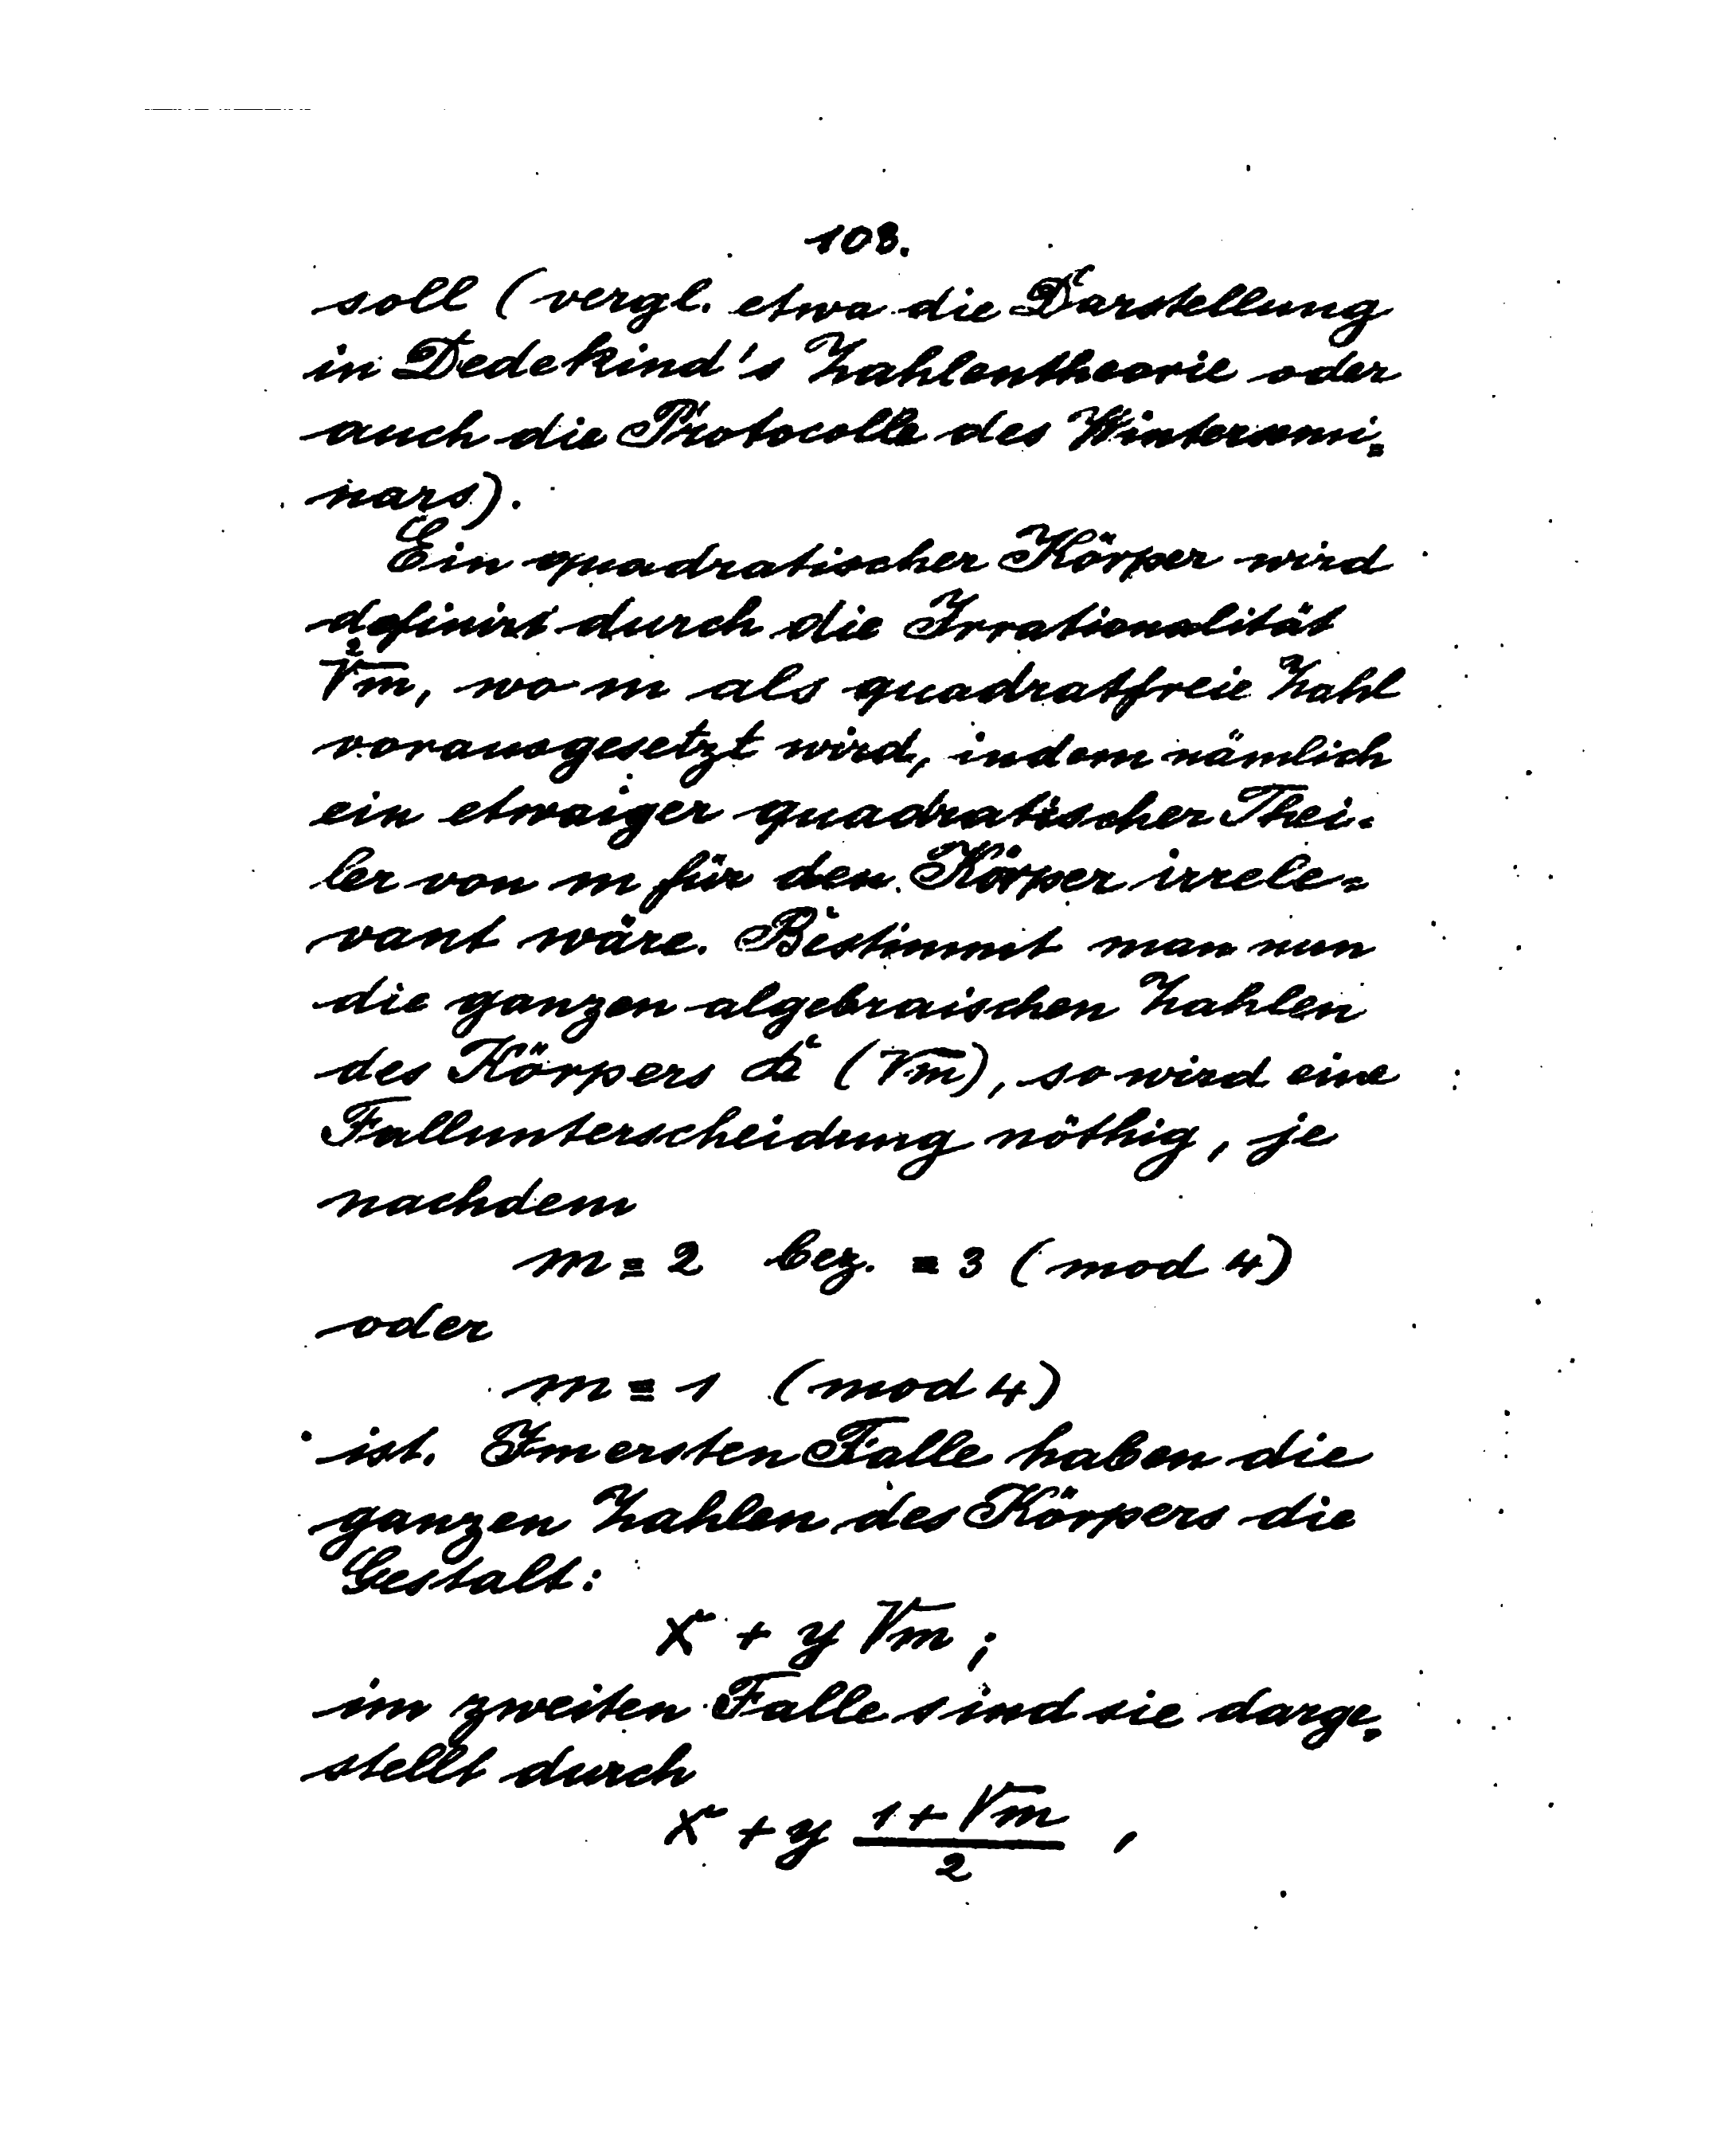 108.
soll (vergl. etwa die Darstellung
in Dedekind's Zahlentheorie oder
auch die Protocolle des Wintersemi=
nars).
Ein quadratischer Körper wird
definirt durch die Irrationalität
²√m, wo m als quadratfreie Zahl
vorausgesetzt wird, indem nämlich
ein etwaiger quadratischer Thei=
ler von m für den Körper irrele=
vant wäre. Bestimmt man nun
die ganzen algebraischen Zahlen
des Körpers (√m), so wird eine
Fallunterscheidung nöthig, je
nachdem
m ≡ 2 bez. ≡ 3 (mod 4)
oder
m ≡ 1 (mod 4)
ist. Im ersten Falle haben die
ganzen Zahlen des Körpers die
Gestalt:
x + y √m ;
im zweiten Falle sind sie darge=
stellt durch
x + y (1 + √m)/2 ,